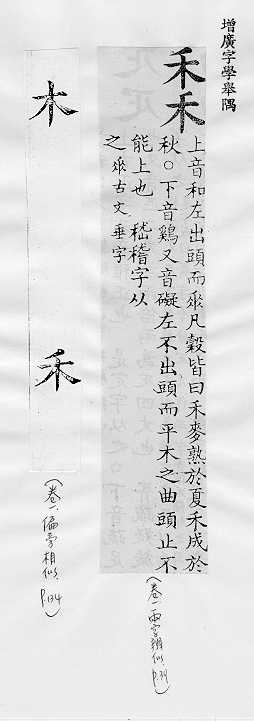 增廣字學舉隅
禾𥝌
上音和左出頭而𠂹凡穀皆曰禾麥熟於夏禾成於
秋○下音鷄又音礙左不出頭而平木之曲頭止不
能上也 嵇稽字从
之𠂹古文垂字
(卷一兩字辨似, P.39)
木 禾
(卷一,偏旁相似, P.134)